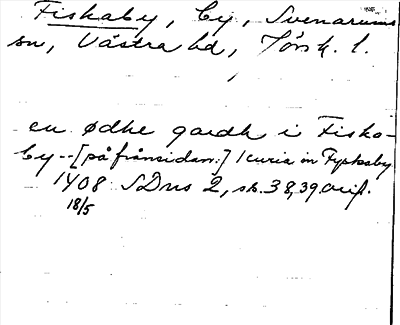 Fiskaby, by, Svenarums
sn, Västra hd, Jönk. l.
en ødhe gardh i Fiska-
by--[på frånsidan:] 1 curia in Fyskaby
1408 SDns 2, sh. 38, 39. Orif.
18/5